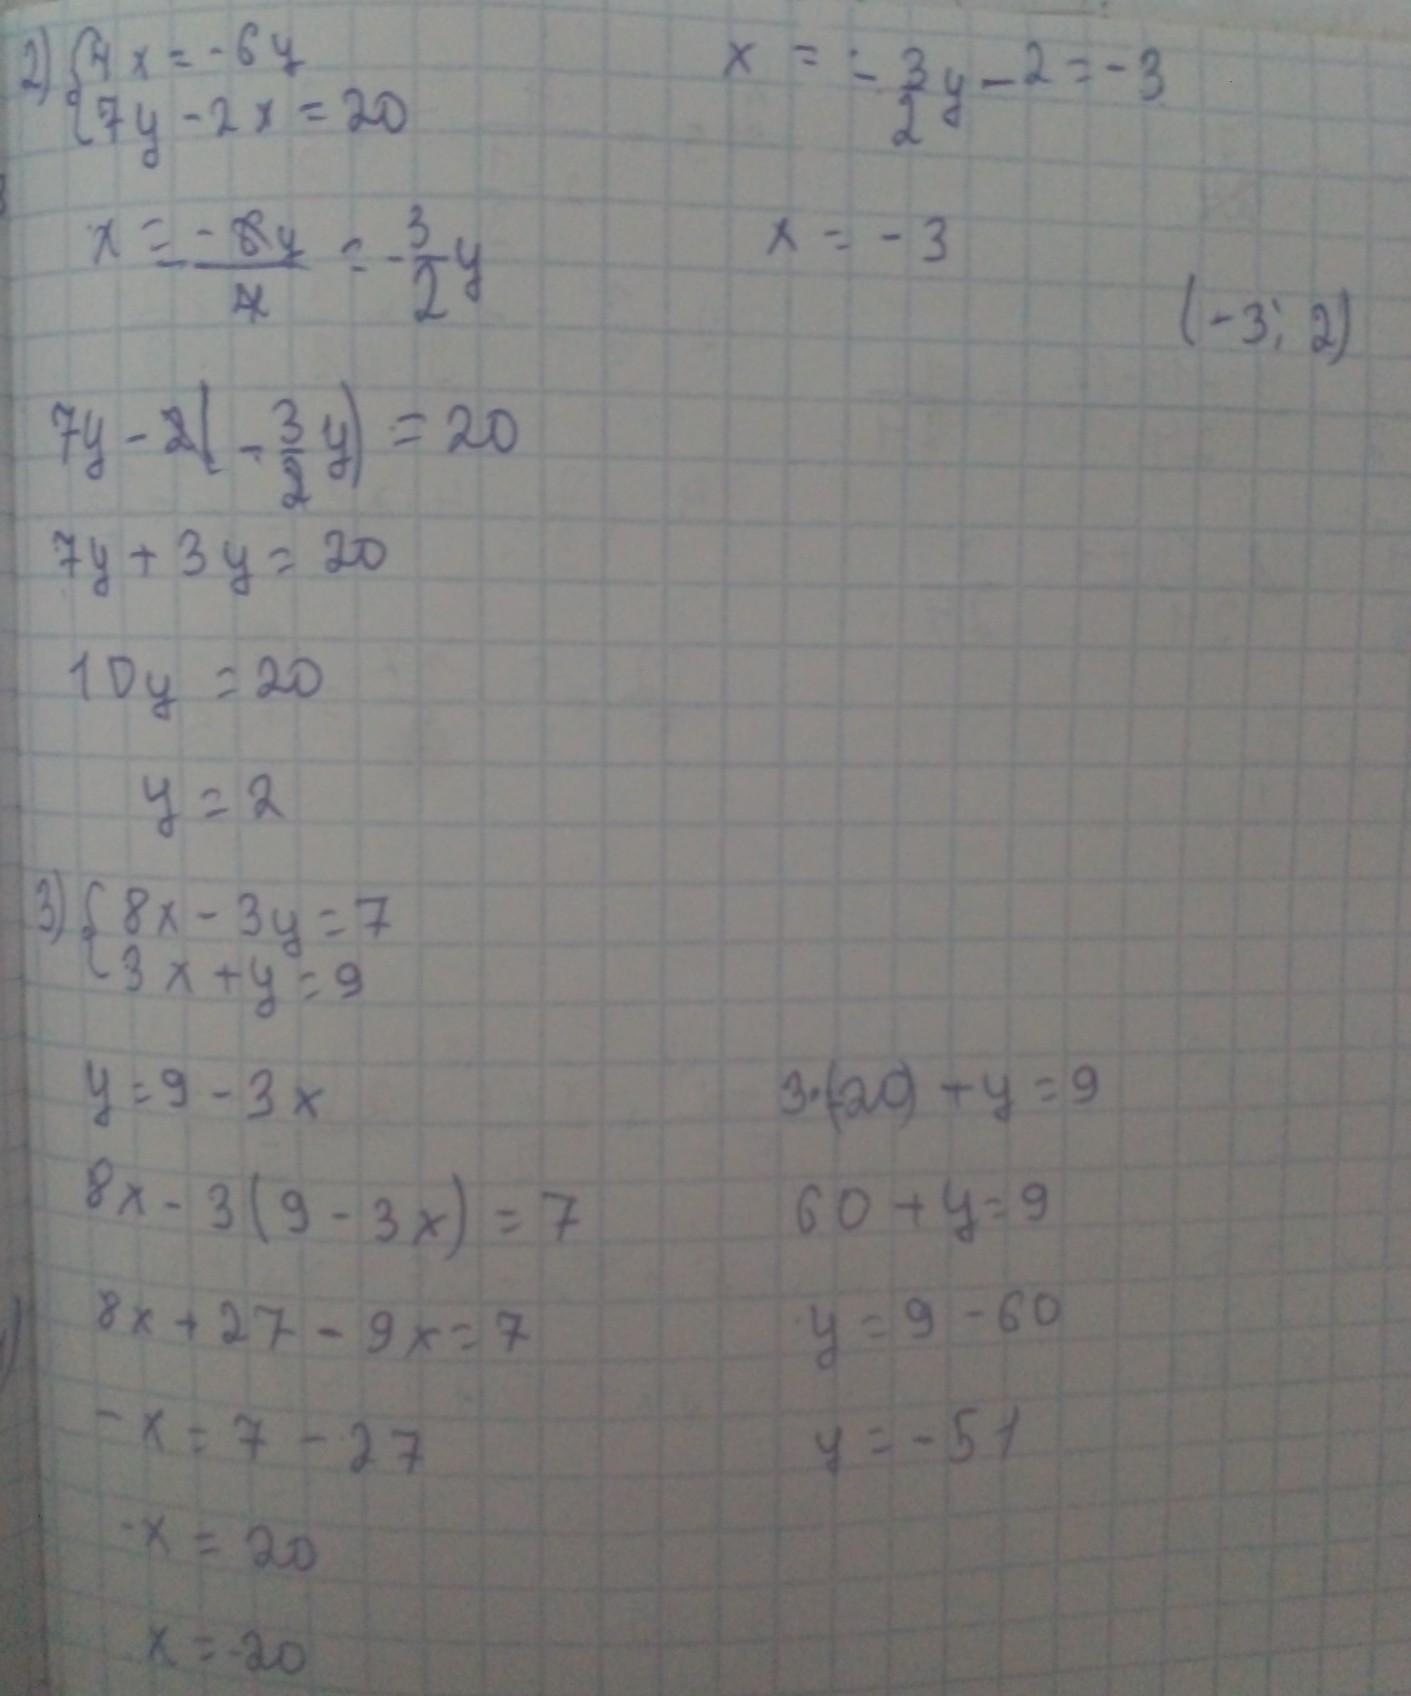 2) { 4x = -6y
7y - 2x = 20
x = -6y/4 = -3/2 y
7y - 2(-3/2 y) = 20
7y + 3y = 20
10y = 20
y = 2
x = -3/2 y - 2 = -3
x = -3
(-3; 2)
3) { 8x - 3y = 7
3x + y = 9
y = 9 - 3x
8x - 3(9 - 3x) = 7
8x + 27 - 9x = 7
-x = 7 - 27
-x = 20
x = -20
3·(20) + y = 9
60 + y = 9
y = 9 - 60
y = -51